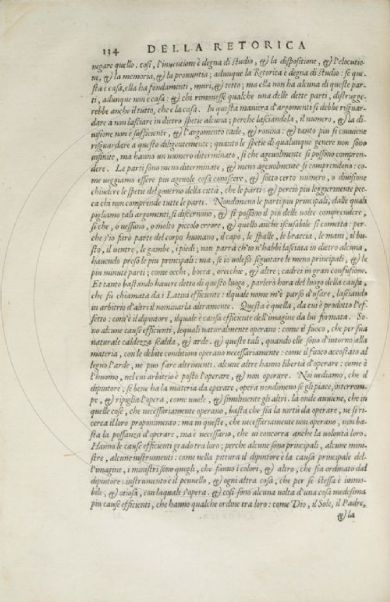 134 DELLA RETORICA
negare quello. così, l'inuentione è degna di studio, & la dispositione, & l'elocutio-
ne, & la memoria, & la pronuntia; adunque la Retorica è degna di studio: se que-
sta è casa, ella ha fondamenti, muri, & tetto; ma ella non ha alcuna di queste par-
ti, adunque non è casa: & chi rimouesse qualche una delle dette parti, distrugge-
rebbe anche il tutto, che è la casa. In questa maniera d'argomenti si debbe risguar-
dare a non lasciare in dietro spetie alcuna; perche lasciandola, il numero, & la di-
uisione non è sofficiente, & l'argomento cade, & rouina: & tanto più si conuiene
risguardare a questo diligentemente; quanto le spetie di qualunque genere non sono
infinite, ma hanno un numero determinato, si che ageuolmente si possono compren-
dere. Le parti sono meno determinate, & meno ageuolmente si comprendono: co-
me ueggiamo essere più ageuole cosa conoscere, & sotto certo numero, o diuisione
chiudere le spetie del gouerno della città, che le parti: & perciò più leggiermente pec-
ca chi non comprende tutte le parti. Nondimeno le parti più principali, dalle quali
pigliamo tali argomenti, si discernono, & si possono il più delle uolte comprendere,
si che, o nessuno, o molto piccolo errore, & quello anche iscusabile si cometta: per-
che s'io sirò parte del corpo humano, il capo, le spalle, le braccia, le mani, il bu-
sto, il uentre, le gambe, i piedi; non parrà ch'io n'habbi lasciata in dietro alcuna,
hauendo preso le più principali: ma, se io uolessi seguitare le meno principali, & le
più minute parti; come occhi, bocca, orecchie, & altre; cadrei in gran confusione.
Et tanto bastando hauere detto di questo luogo, parlerà hora del luogo della causa,
che fu chiamata da i Latini efficiente: ilquale nome m'è parso d'usare, lasciando
in arbitrio d'altri il nominarla altramente. Questa è quella, da cui è prodotto l'ef-
fetto: com'è il dipintore, ilquale è causa efficiente dell'imagine da lui formata. So-
no alcune cause efficienti, lequali naturalmente operano: come il fuoco, che per sua
naturale caldezza scalda, & arde: & queste tali, quando elle sono d'intorno alla
materia, con le debite conditioni operano necessariamente: come il fuoco accostato al
legno l'arde, ne può fare altrimenti. alcune altre hanno libertà d'operare: come è
l'huomo, nel cui arbitrio è posto l'operare, & non operare. Noi uediamo, che il
dipintore, se bene ha la materia da operare, opera nondimeno se gli piace, interrom-
pe, & ripiglia l'opera, come uuole, & similmente gli altri. la onde auuiene, che in
quelle cose, che necessariamente operano, basta che sia la uirtù da operare, ne si ri-
cerca il loro proponimento: ma in queste, che necessariamente non operano, non ba-
sta la possanza d'operare, ma è necessario, che ui concorra anche la uolontà loro.
Hanno le cause efficienti grado tra loro: perche alcune sono principali, alcune mini-
stre, alcune instrumenti: come nella pittura il dipintore è la causa principale del-
l'imagine, i ministri sono quegli, che fanno i colori, & altro, che sia ordinato dal
dipintore: instrumento è il pennello, & ogni altra cosa, che per se stessa è immo-
bile, & oziosa, con laquale s'opera. & così sono alcuna uolta d'una cosa medesima
più cause efficienti, che hanno qualche ordine tra loro: come Dio, il Sole, il Padre,
& la